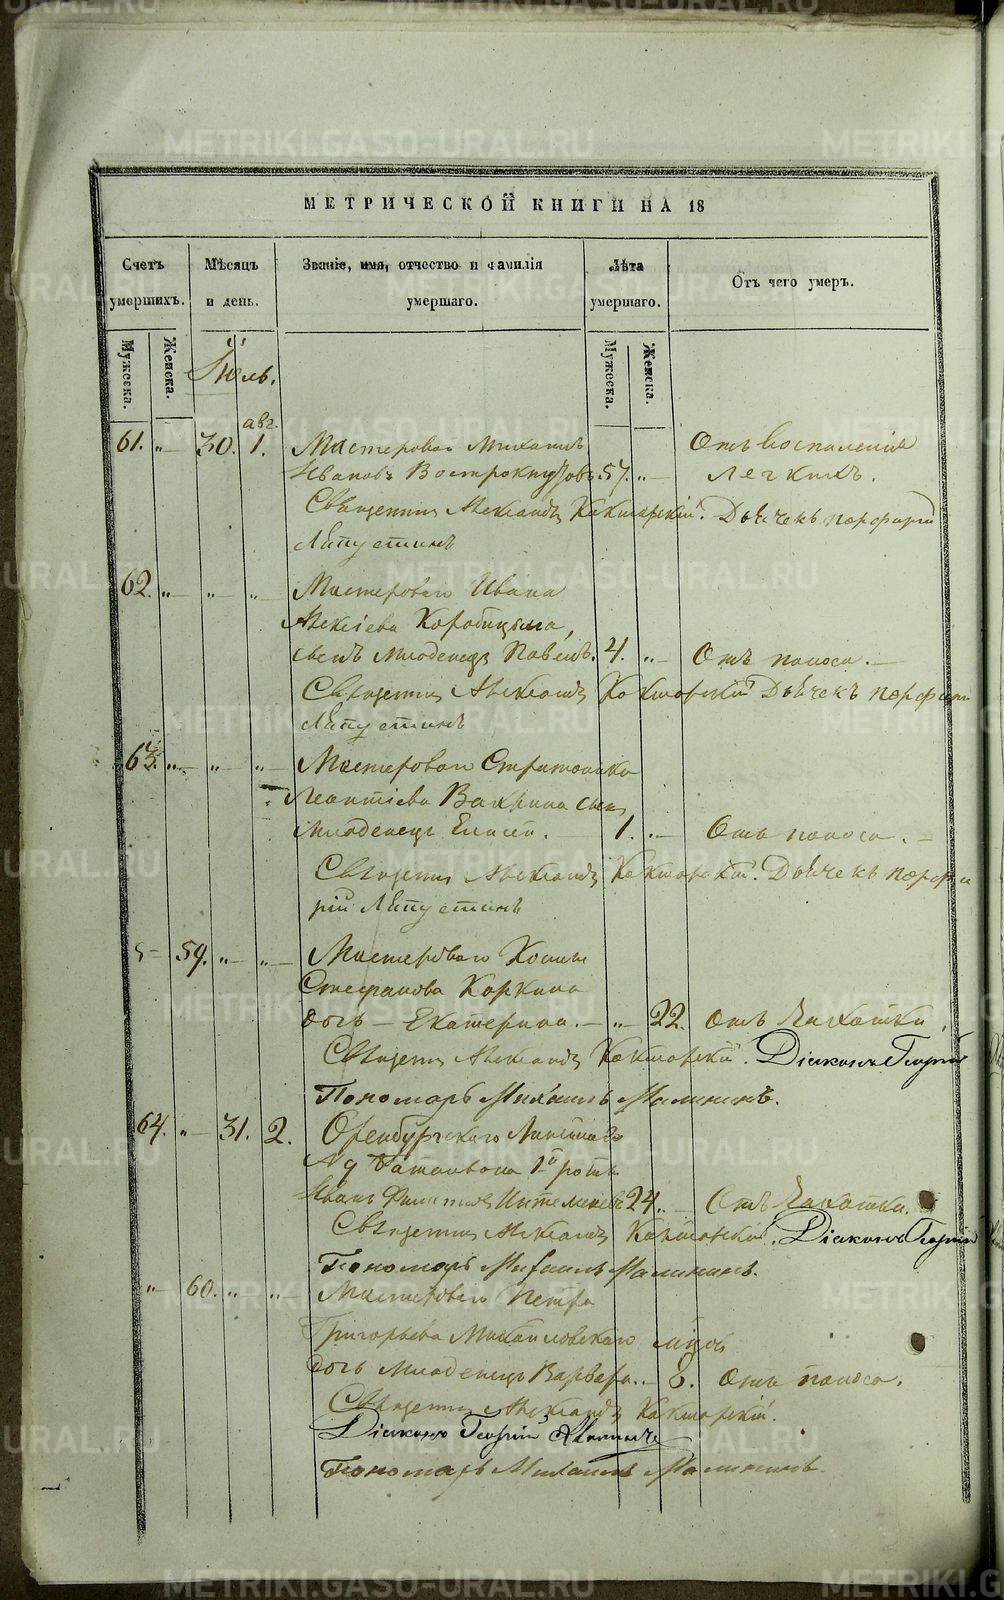 МЕТРИЧЕСКОЙ КНИГИ НА 18
Счетъ умершихъ.
Мѣсяцъ и день.
Званіе, имя, отчество и фамилія умершаго.
Лѣта умершаго.
Отъ чего умеръ.
Мужеска.
Женска.
Мужеска.
Женска.
Іюль.
авг.
61. „ 30. 1. Мастеровой Михаилъ Отъ воспаленія
Ивановъ Вострокнутовъ. 57. „ легкихъ.
Священникъ Александръ Дьячекъ Порфирій
Лапустинъ
62. „ „ „ Мастероваго Ивана
Алексіева Коробицына,
сынъ младенецъ Павелъ. 4. „ Отъ поноса.
Священникъ Александръ Дьячекъ Порфирій
Лапустинъ
63. „ „ „ Мастероваго Стратоника
Леонтіева Вахрина сынъ
младенецъ Елисей. 1. „ Отъ поноса.
Священникъ Александръ Дьячекъ Порфи
рій Лапустинъ
„ 59. „ „ Мастероваго Хомы
Стефанова Коркина
дочь Екатерина. „ 22. Отъ чахотки.
Священникъ Александръ Діаконъ Георгій
Пономарь Михаилъ Малининъ.
64. „ 31. 2. Оренбургскаго Линейнаго
баталіона 1й роты
Иванъ Филатовъ 24. Отъ чахотки.
Священникъ Александръ Діаконъ Георгій
Пономарь Михаилъ Малининъ.
„ 60. „ „ Мастероваго Петра
Григорьева Михайловскаго
дочь младенецъ Варвара. 8. Отъ поноса.
Священникъ Александръ
Діаконъ Георгій
Пономарь Михаилъ Малининъ.
METRIKI.GASO-URAL.RU